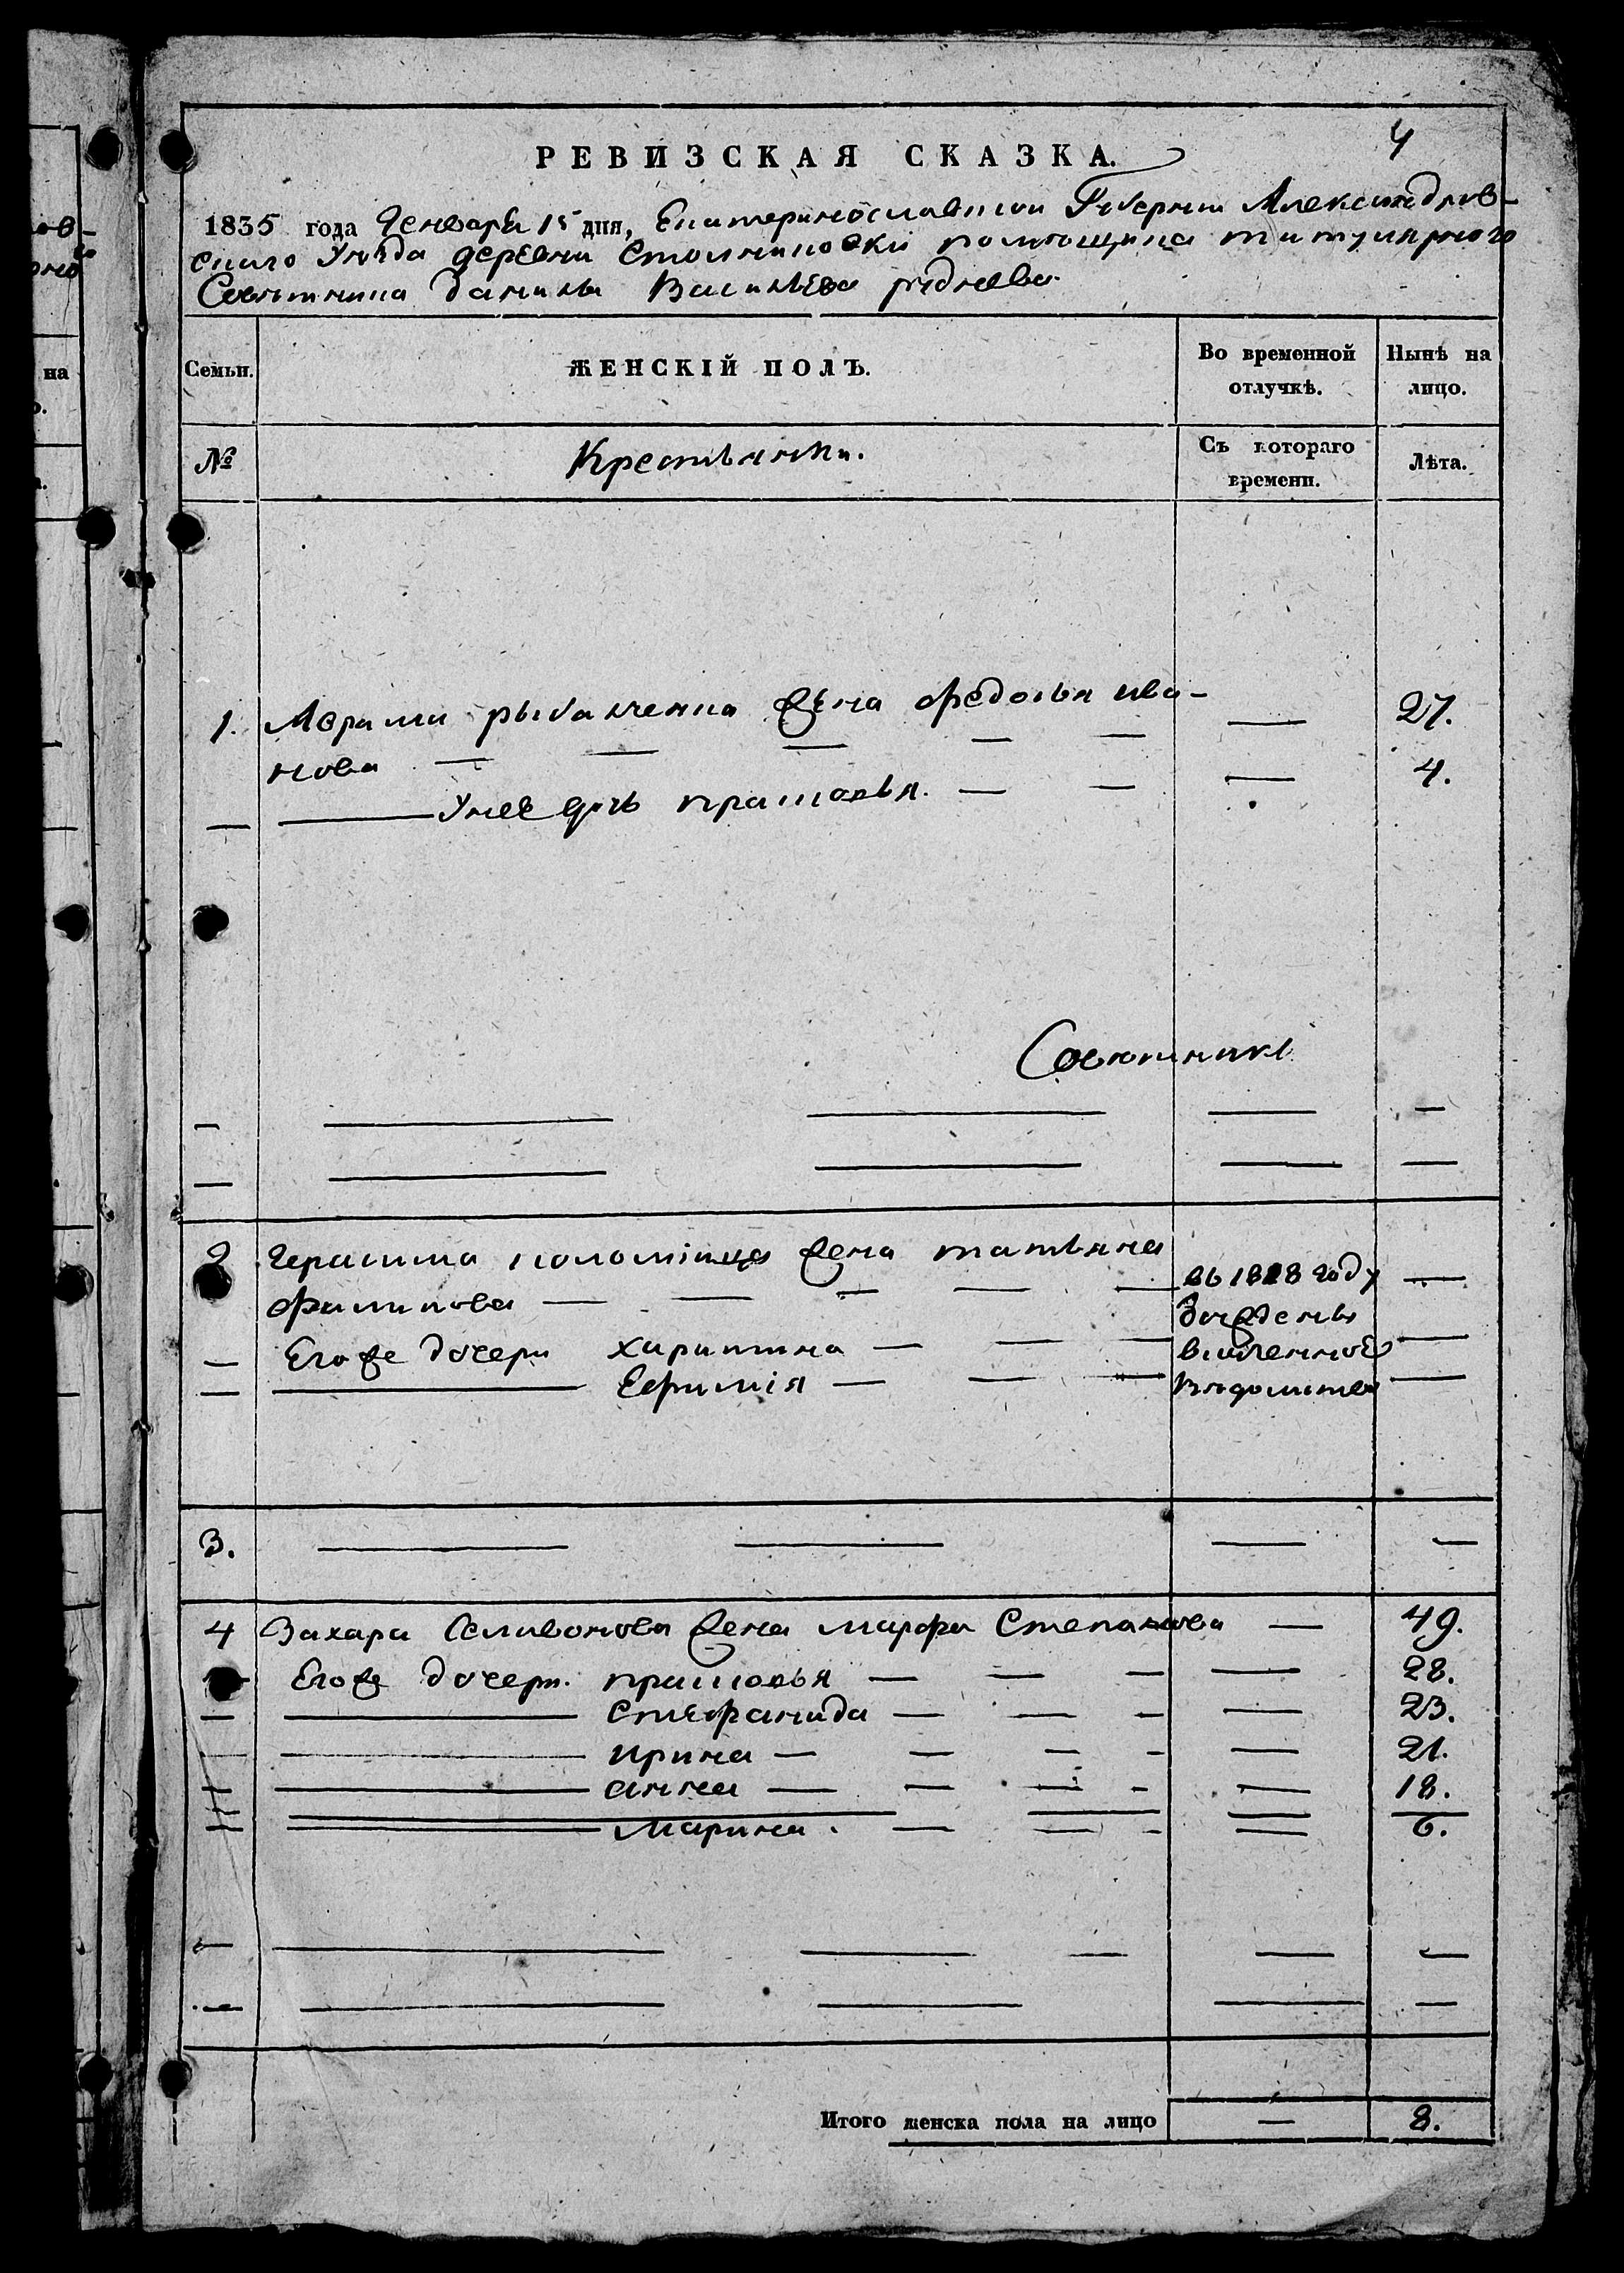 4
РЕВИЗСКАЯ СКАЗКА.
1835 года Генваря 15 дня, Екатеринославской Губернии Александров-
скаго Уезда деревни помещика титулярного
Советника Данилы Васильева
Семьи.
ЖЕНСКІЙ ПОЛЪ.
Во временной отлучкѣ.
Нынѣ на лицо.
№
Крестьянки.
Съ котораго времени.
Лѣта.
1. жена Федосья ива- — 27.
нова — — — — —
— — Унее дочь прасковья. — — — 4.
Советникъ
— — — — —
— — — — —
2 Герасима жена татьяна
Филипова — — — — — въ 1828 году —
— Егоже дочери харитина — — —
— — Ефимія — — —
3. — — — —
4 Захара Селивонова жена марфа Степанова — 49.
— Егоже дочери. прасковья — — — — 28.
— — Стефанида — — — — 23.
— — ирина — — — — — 21.
— — анна — — — — — 18.
— — Марина. — — — — 6.
— — — — — —
— — — — —
Итого женска пола на лицо — 8.
на